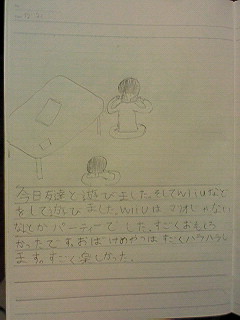 今日友達と遊びました。そしてwiiuなど
をしてあそびました。wiiuは マオじゃない
なんとか パーティーで した。すごくおもろ
かったです。おばけめやつはすごくハラハラし
ます。すごく楽しかった。